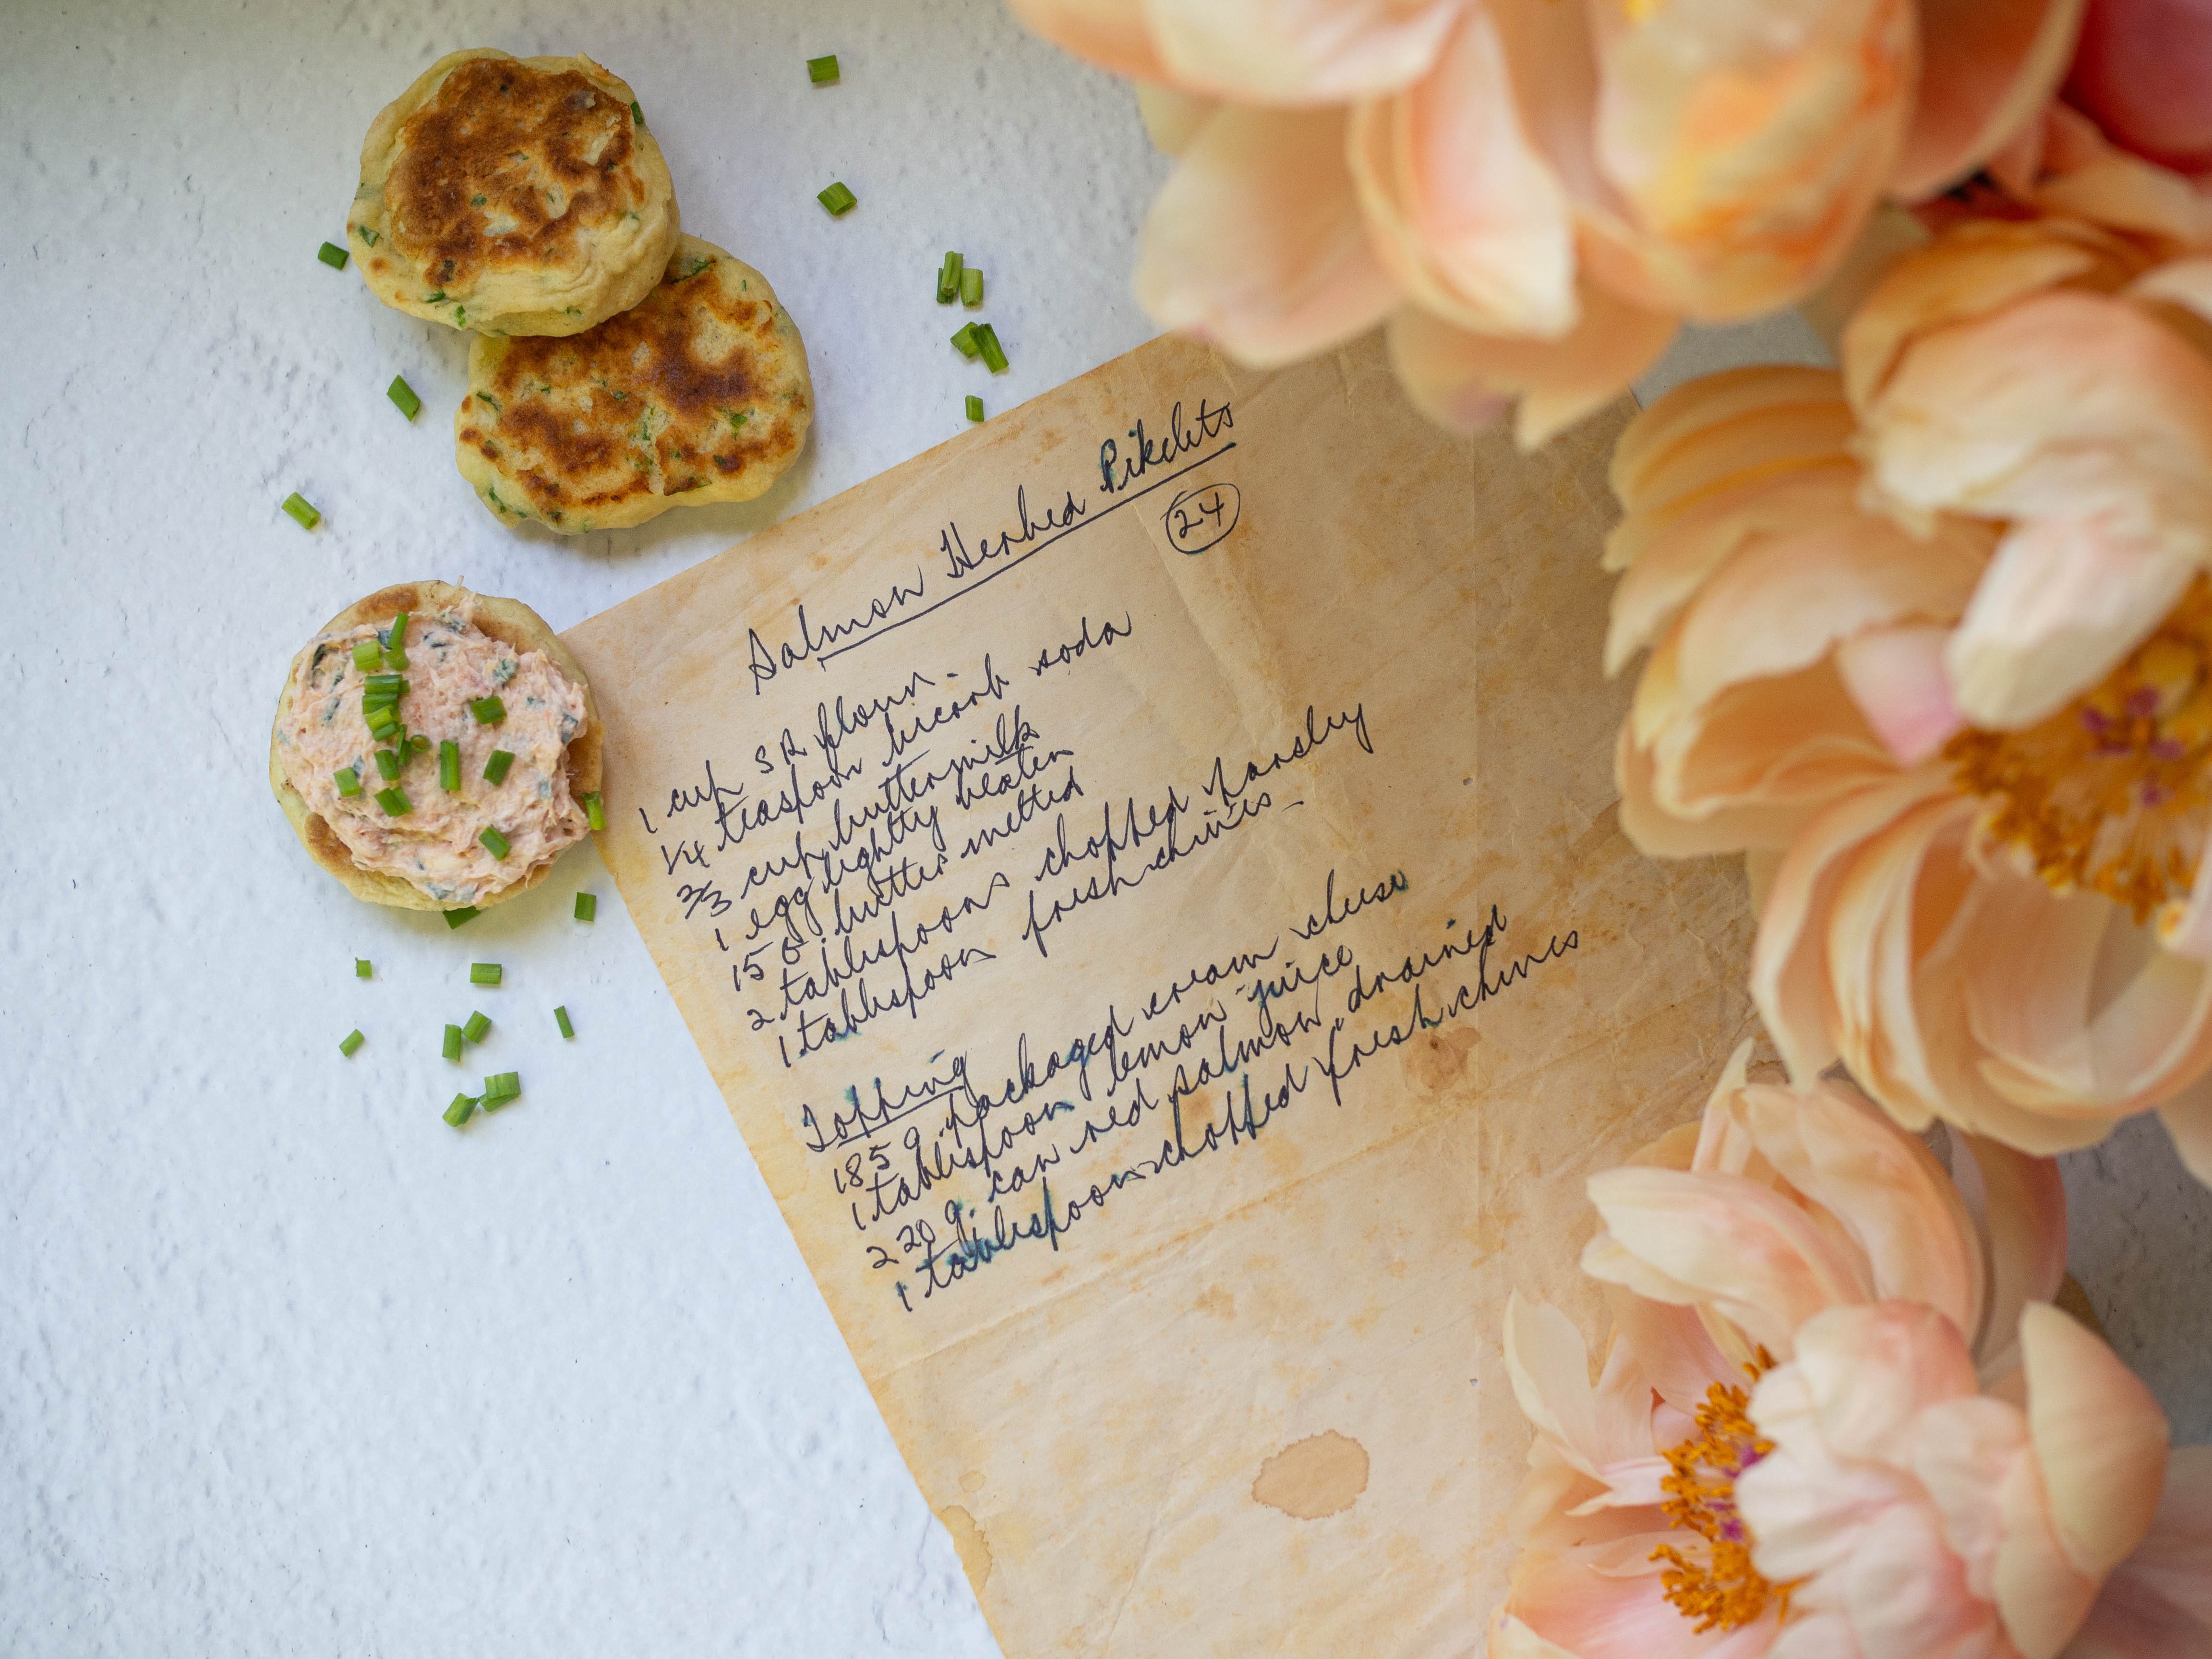 Salmon Herbed Pikelets
24
1 cup SR flour.
1/4 teaspoon bicarb soda
2/3 cup buttermilk
1 egg lightly beaten
15 g butter melted
2 tablespoons chopped parsley
1 tablespoon fresh chives
Topping
185 g packaged cream cheese
1 tablespoon lemon juice
220 g can red salmon, drained
1 tablespoon chopped fresh chives